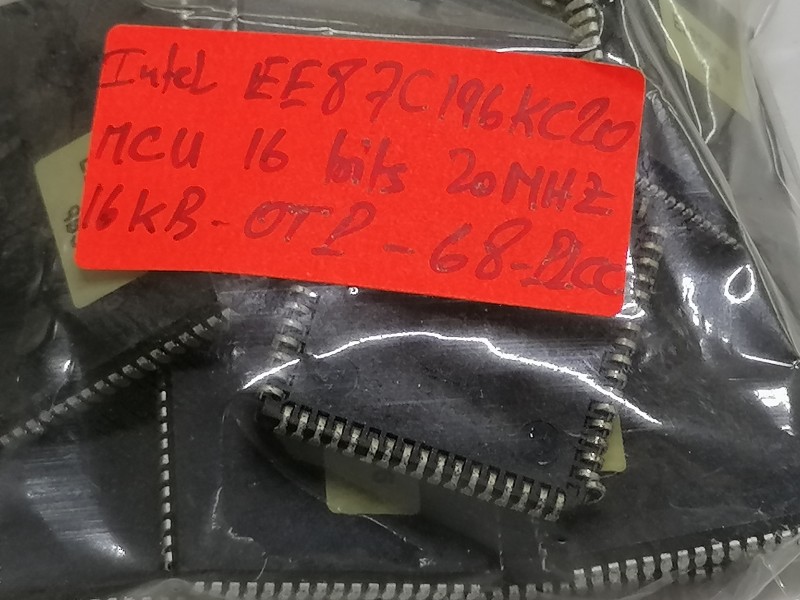 Intel EE87C196KC20
MCU 16 bits 20MHZ
16KB-OTP-68-Plcc